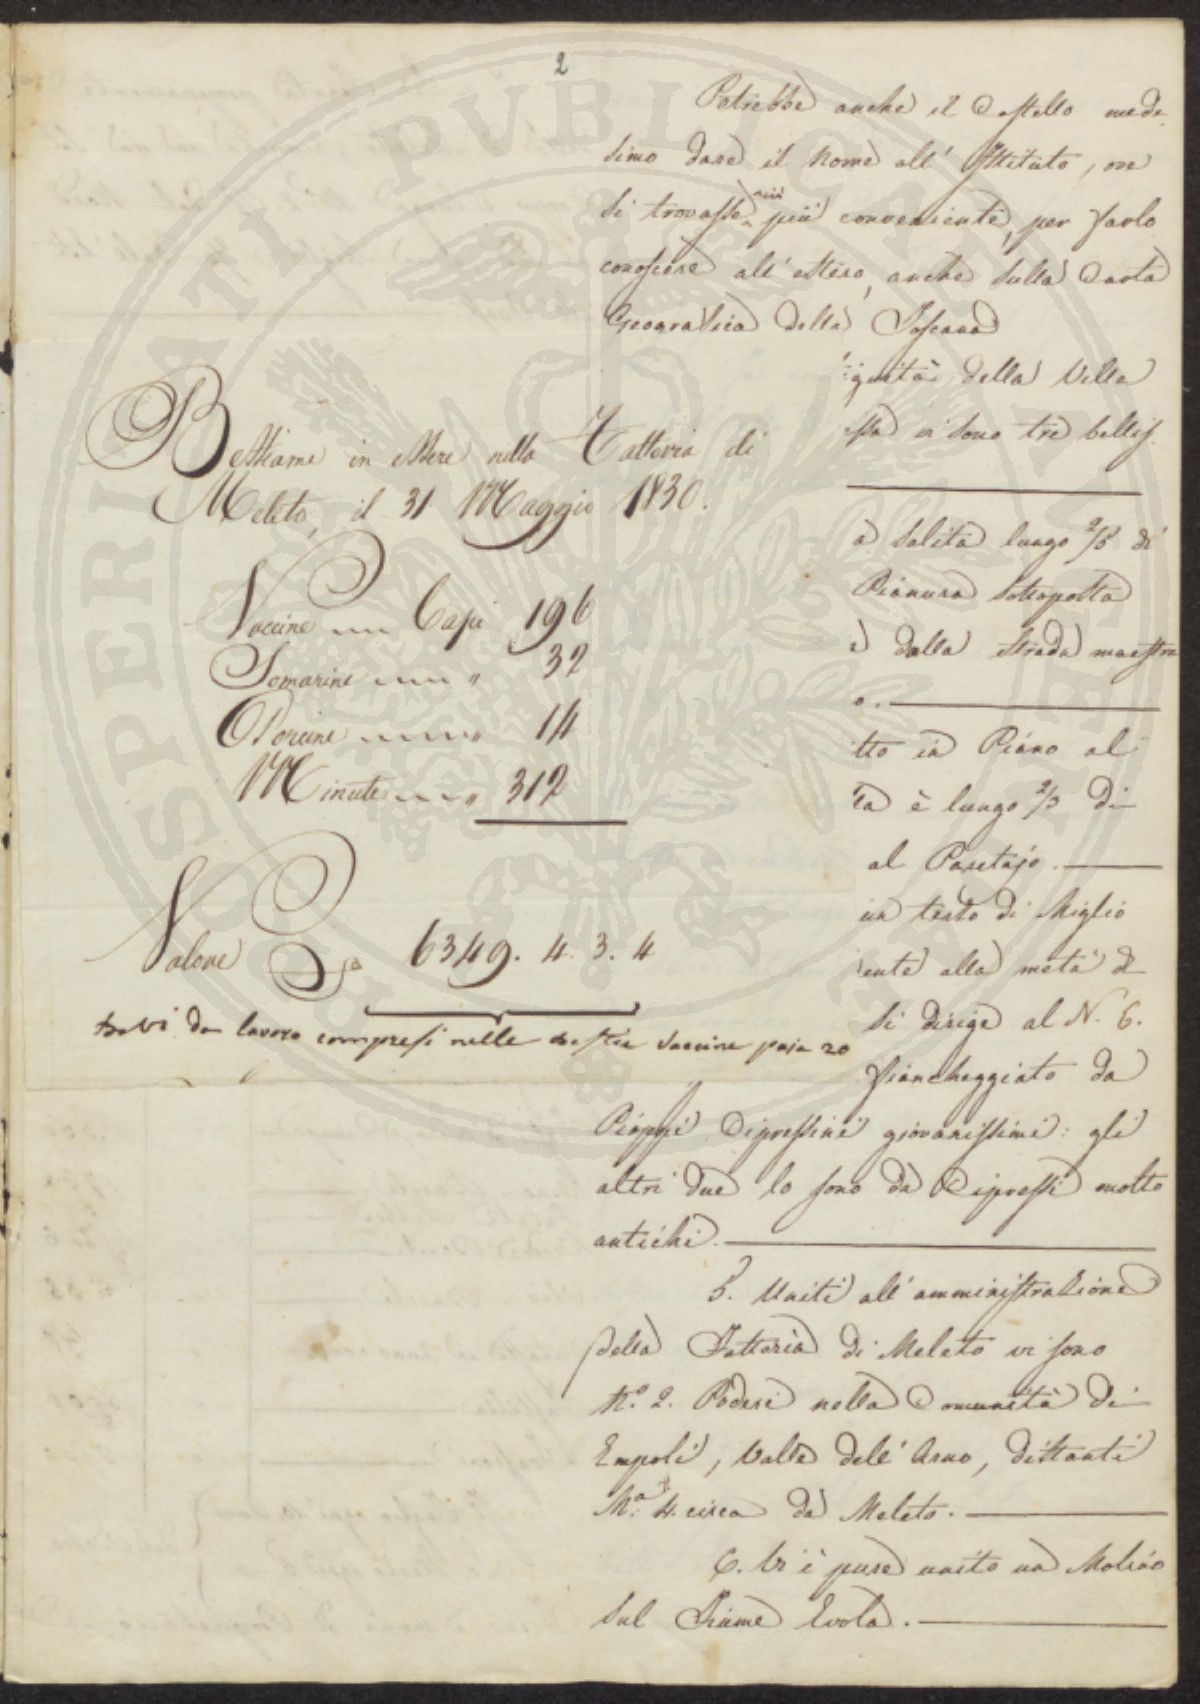 2
Potrebbe anche il Castello mede-
simo dare il Nome all' Istituto, ove
si trovasse più conveniente, per farlo
conoscere all' estero, anche sulla Carta
Geografica della Toscana
iquità della Villa
essa vi sono tre belliss.
a salita lungo 2/3 di
Pianura sottoposta
e dalla strada maestra
o.
tto in Piano al
ta è lungo 2/3 di
al Paretajo.
un terzo di Miglio
ente alla metà di
si dirige al N. 6.
fiancheggiato da
Pioppi Cipressini giovanissimi: gli
altri due lo sono da Cipressi molto
antichi.
5. Uniti all' amministrazione
della Fattoria di Meleto vi sono
N.º 2. Poderi nella Comunità di
Empoli, Valle dell' Arno, distanti
M.a 4. circa da Meleto.
6. Vi è pure unito un Molino
sul Fiume Evola.
Bestiame in essere nella Fattoria di
Meleto, il 31 Maggio 1830.
Vaccine Capi 196
Somarine " 32
Porcine " 14
Minute " 312
Valore Sa 6349. 4. 3. 4
bovi da lavoro compresi nelle bestie vaccine paja 20
PERICVLOSPERIATI PVBLICAE VTILI